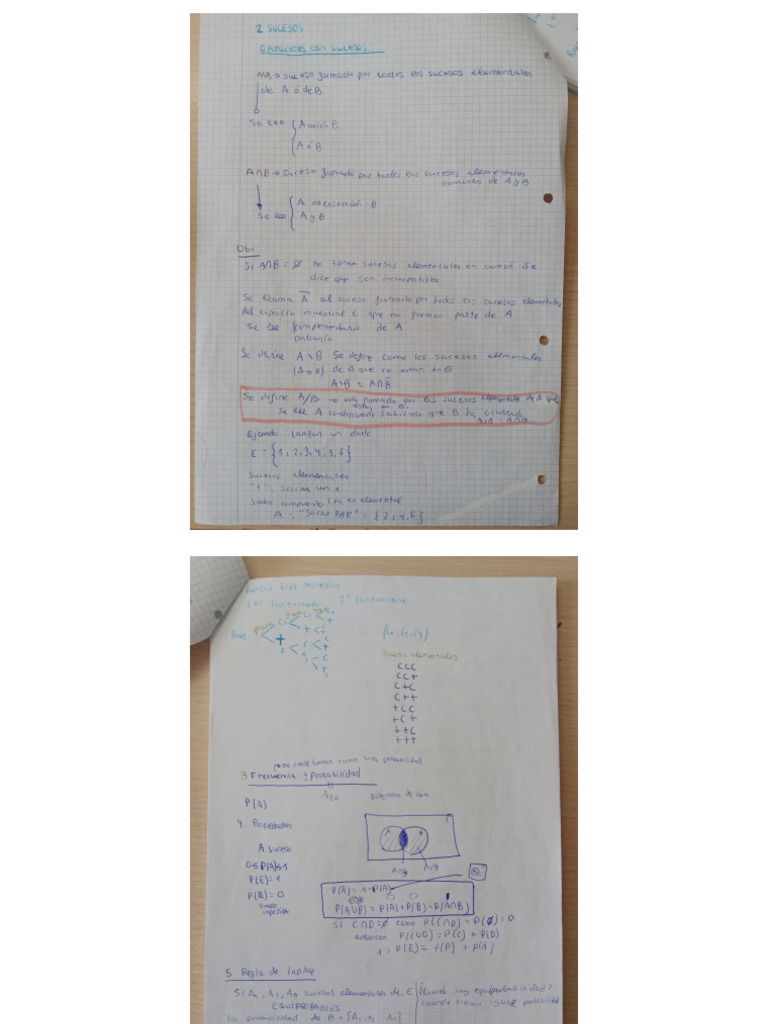 2 SUCESOS
Operaciones con sucesos
AUB → Suceso formado por todos los sucesos elementales
de A ó de B
Se lee { A unión B
A ó B
A∩B → Suceso formado por todos los sucesos elementales
comunes de A y B
Se lee { A intersección B
A y B
Obs:
Si A∩B = ∅ no tienen sucesos elementales en común Se
dice que son incompatibles
Se llama Ā al suceso formado por todos los sucesos elementales
del espacio muestral E que no forman parte de A
Se lee complementario de A
contrario
Se define A \ B Se define como los sucesos elementales
de A que no estan en B
A-B = A∩B̄
Se define A/B → formado por los sucesos elementales de A que
estan en B
Se lee A condicionado sabiendo que B ha ocurrido
Ejemplo Lanzar un dado
E = {1, 2, 3, 4, 5, 6}
Sucesos elementales
"1", Sacar un 1
suceso compuesto (no es elemental)
A = "Sacar PAR" = {2, 4, 6}
Lanzar tres monedas
1er lanzamiento 2º lanzamiento
(C1, C2, C3)
Sucesos elementales
CCC
CC+
C+C
C++
+CC
+C+
++C
+++
3 Frecuencia y probabilidad
P(A)
Diagrama de Venn
4. Propiedades
A suceso
0 ≤ P(A) ≤ 1
P(E) = 1
P(∅) = 0
suceso
imposible
E
A∩B
AUB
P(Ā) = 1 - P(A)
- P(AUB) = P(A) + P(B) - P(A∩B)
Si C∩D = ∅ como P(C∩D) = P(∅) = 0
entonces P(CUD) = P(C) + P(D)
5. Regla de Laplace
Si A1, A2, An sucesos elementales de E
EQUIPROBABLES
¿Cuando hay equiprobabilidad?
cuando tienen igual probabilidad
la probabilidad de B = {A1, A2 A3}